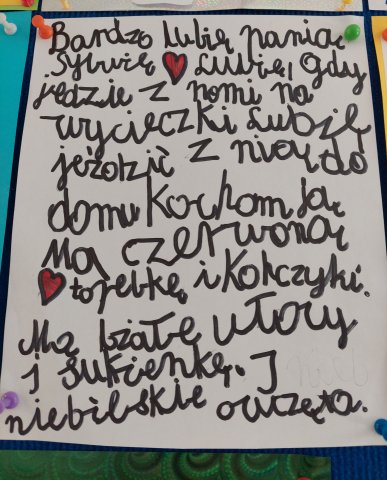 Bardzo lubię panią
Sylwię ♥ Lubię, gdy
jedzie z nami na
wycieczki Lubię
jeździć z nią do
domu Kocham ją
Ma czerwoną
♥ torebkę i Kolczyki.
Ma białe włosy
i sukienkę. I
niebieskie oczęta.